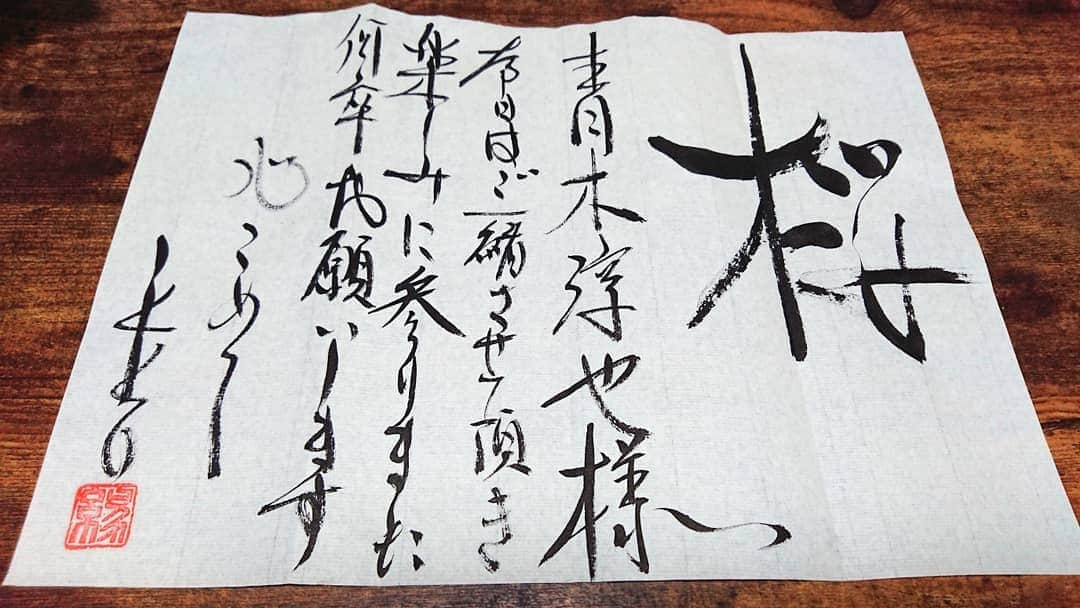 桜
青木淳也様へ
本日はご一緒させて頂き
楽しみに参りました
何卒お願いします
心こめて